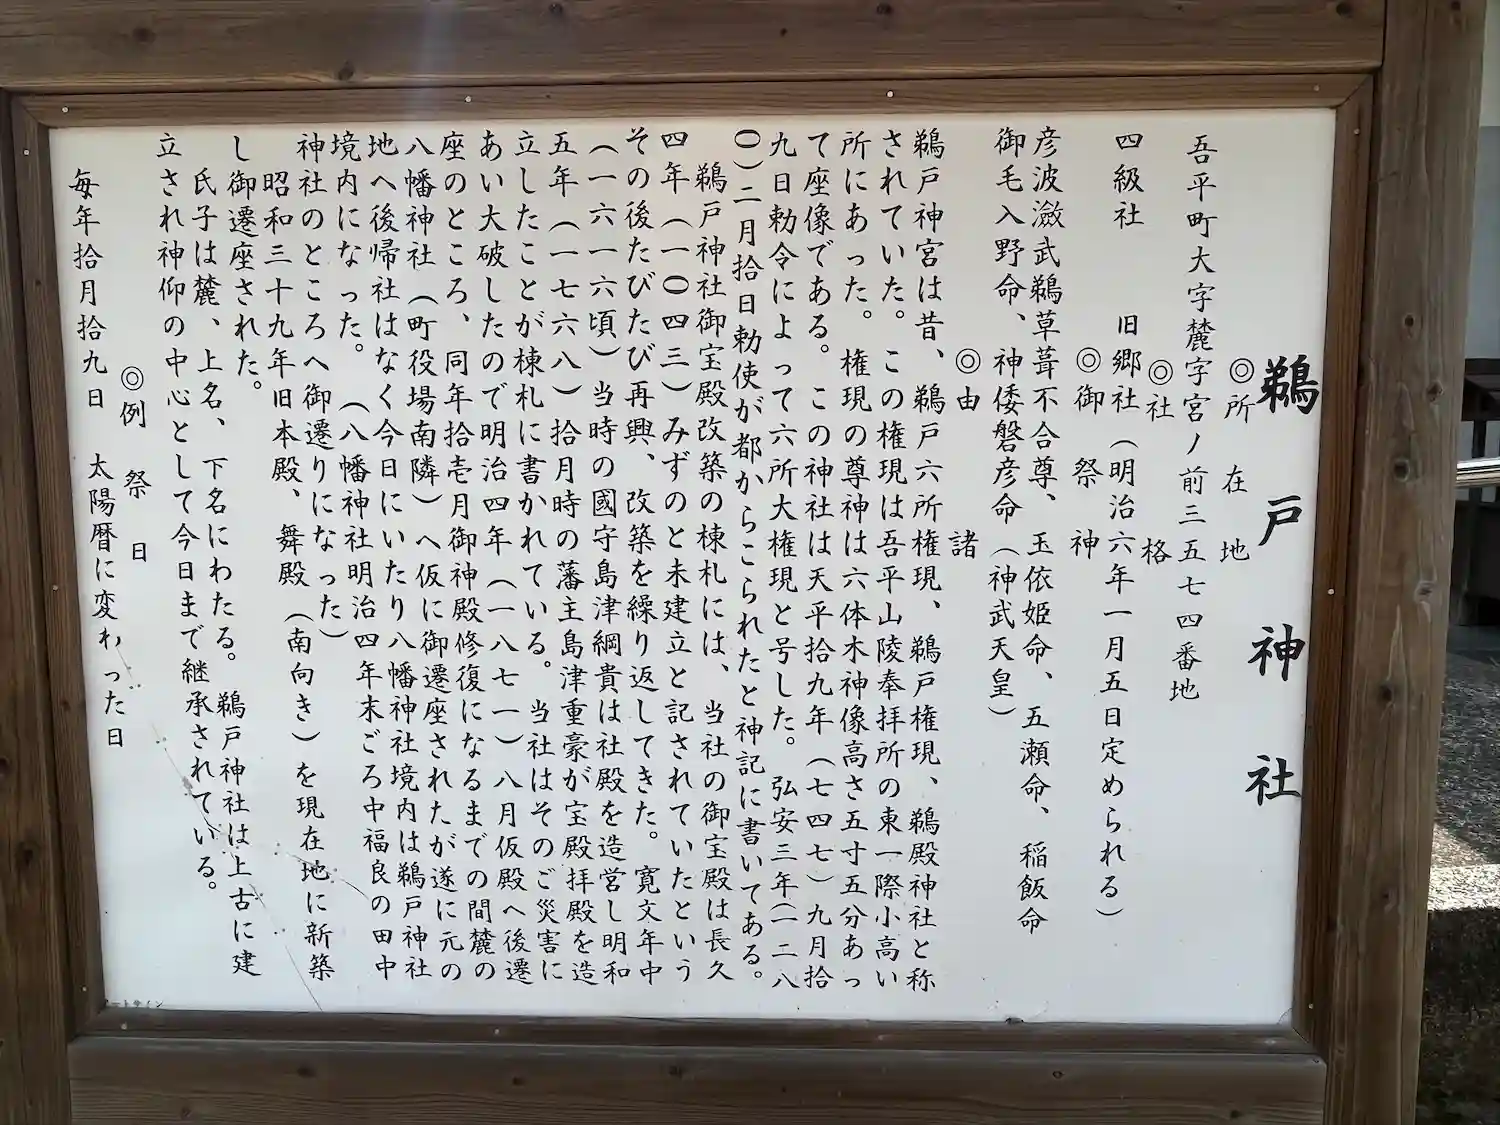 鵜戸神社
◎所在地
吾平町大字麓字宮ノ前三五七四番地
◎社格
四級社　旧郷社（明治六年一月五日定められる）
◎御祭神
彦波瀲武鵜草葺不合尊、玉依姫命、五瀬命、稲飯命
御毛入野命、神倭磐彦命（神武天皇）
◎由諸
鵜戸神宮は昔、鵜戸六所権現、鵜戸権現、鵜殿神社と称
されていた。この権現は吾平山陵奉拝所の東一際小高い
所にあった。権現の尊神は六体木神像高さ五寸五分あっ
て座像である。この神社は天平拾九年（七四七）九月拾
九日勅令によって六所大権現と号した。弘安三年（一二八
〇）二月拾日勅使が都からこられたと神記に書いてある。
鵜戸神社御宝殿改築の棟札には、当社の御宝殿は長久
四年（一〇四三）みずのと未建立と記されていたという
その後たびたび再興、改築を繰り返してきた。寛文年中
（一六一六頃）当時の國守島津綱貴は社殿を造営し明和
五年（一七六八）拾月時の藩主島津重豪が宝殿拝殿を造
立したことが棟札に書かれている。当社はそのご災害に
あい大破したので明治四年（一八七一）八月仮殿へ後遷
座のところ、同年拾壱月御神殿修復になるまでの間麓の
八幡神社（町役場南隣）へ仮に御遷座されたが遂に元の
地へ後帰社はなく今日にいたり八幡神社境内は鵜戸神社
境内になった。（八幡神社明治四年末ごろ中福良の田中
神社のところへ御遷りになった）
昭和三十九年旧本殿、舞殿（南向き）を現在地に新築
し御遷座された。
氏子は麓、上名、下名にわたる。鵜戸神社は上古に建
立され神仰の中心として今日まで継承されている。
◎例祭日
毎年拾月拾九日　太陽暦に変わった日